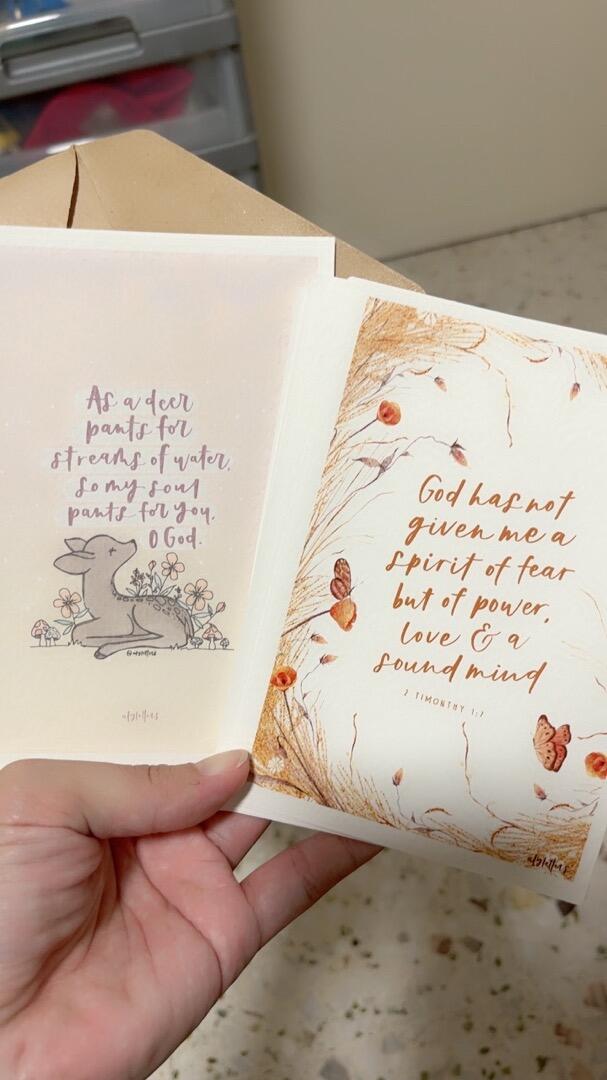 As a deer
pants for
streams of water,
so my soul
pants for you,
O God.
God has not
given me a
spirit of fear
but of power,
love & a
sound mind
2 TIMONTHY 1:7